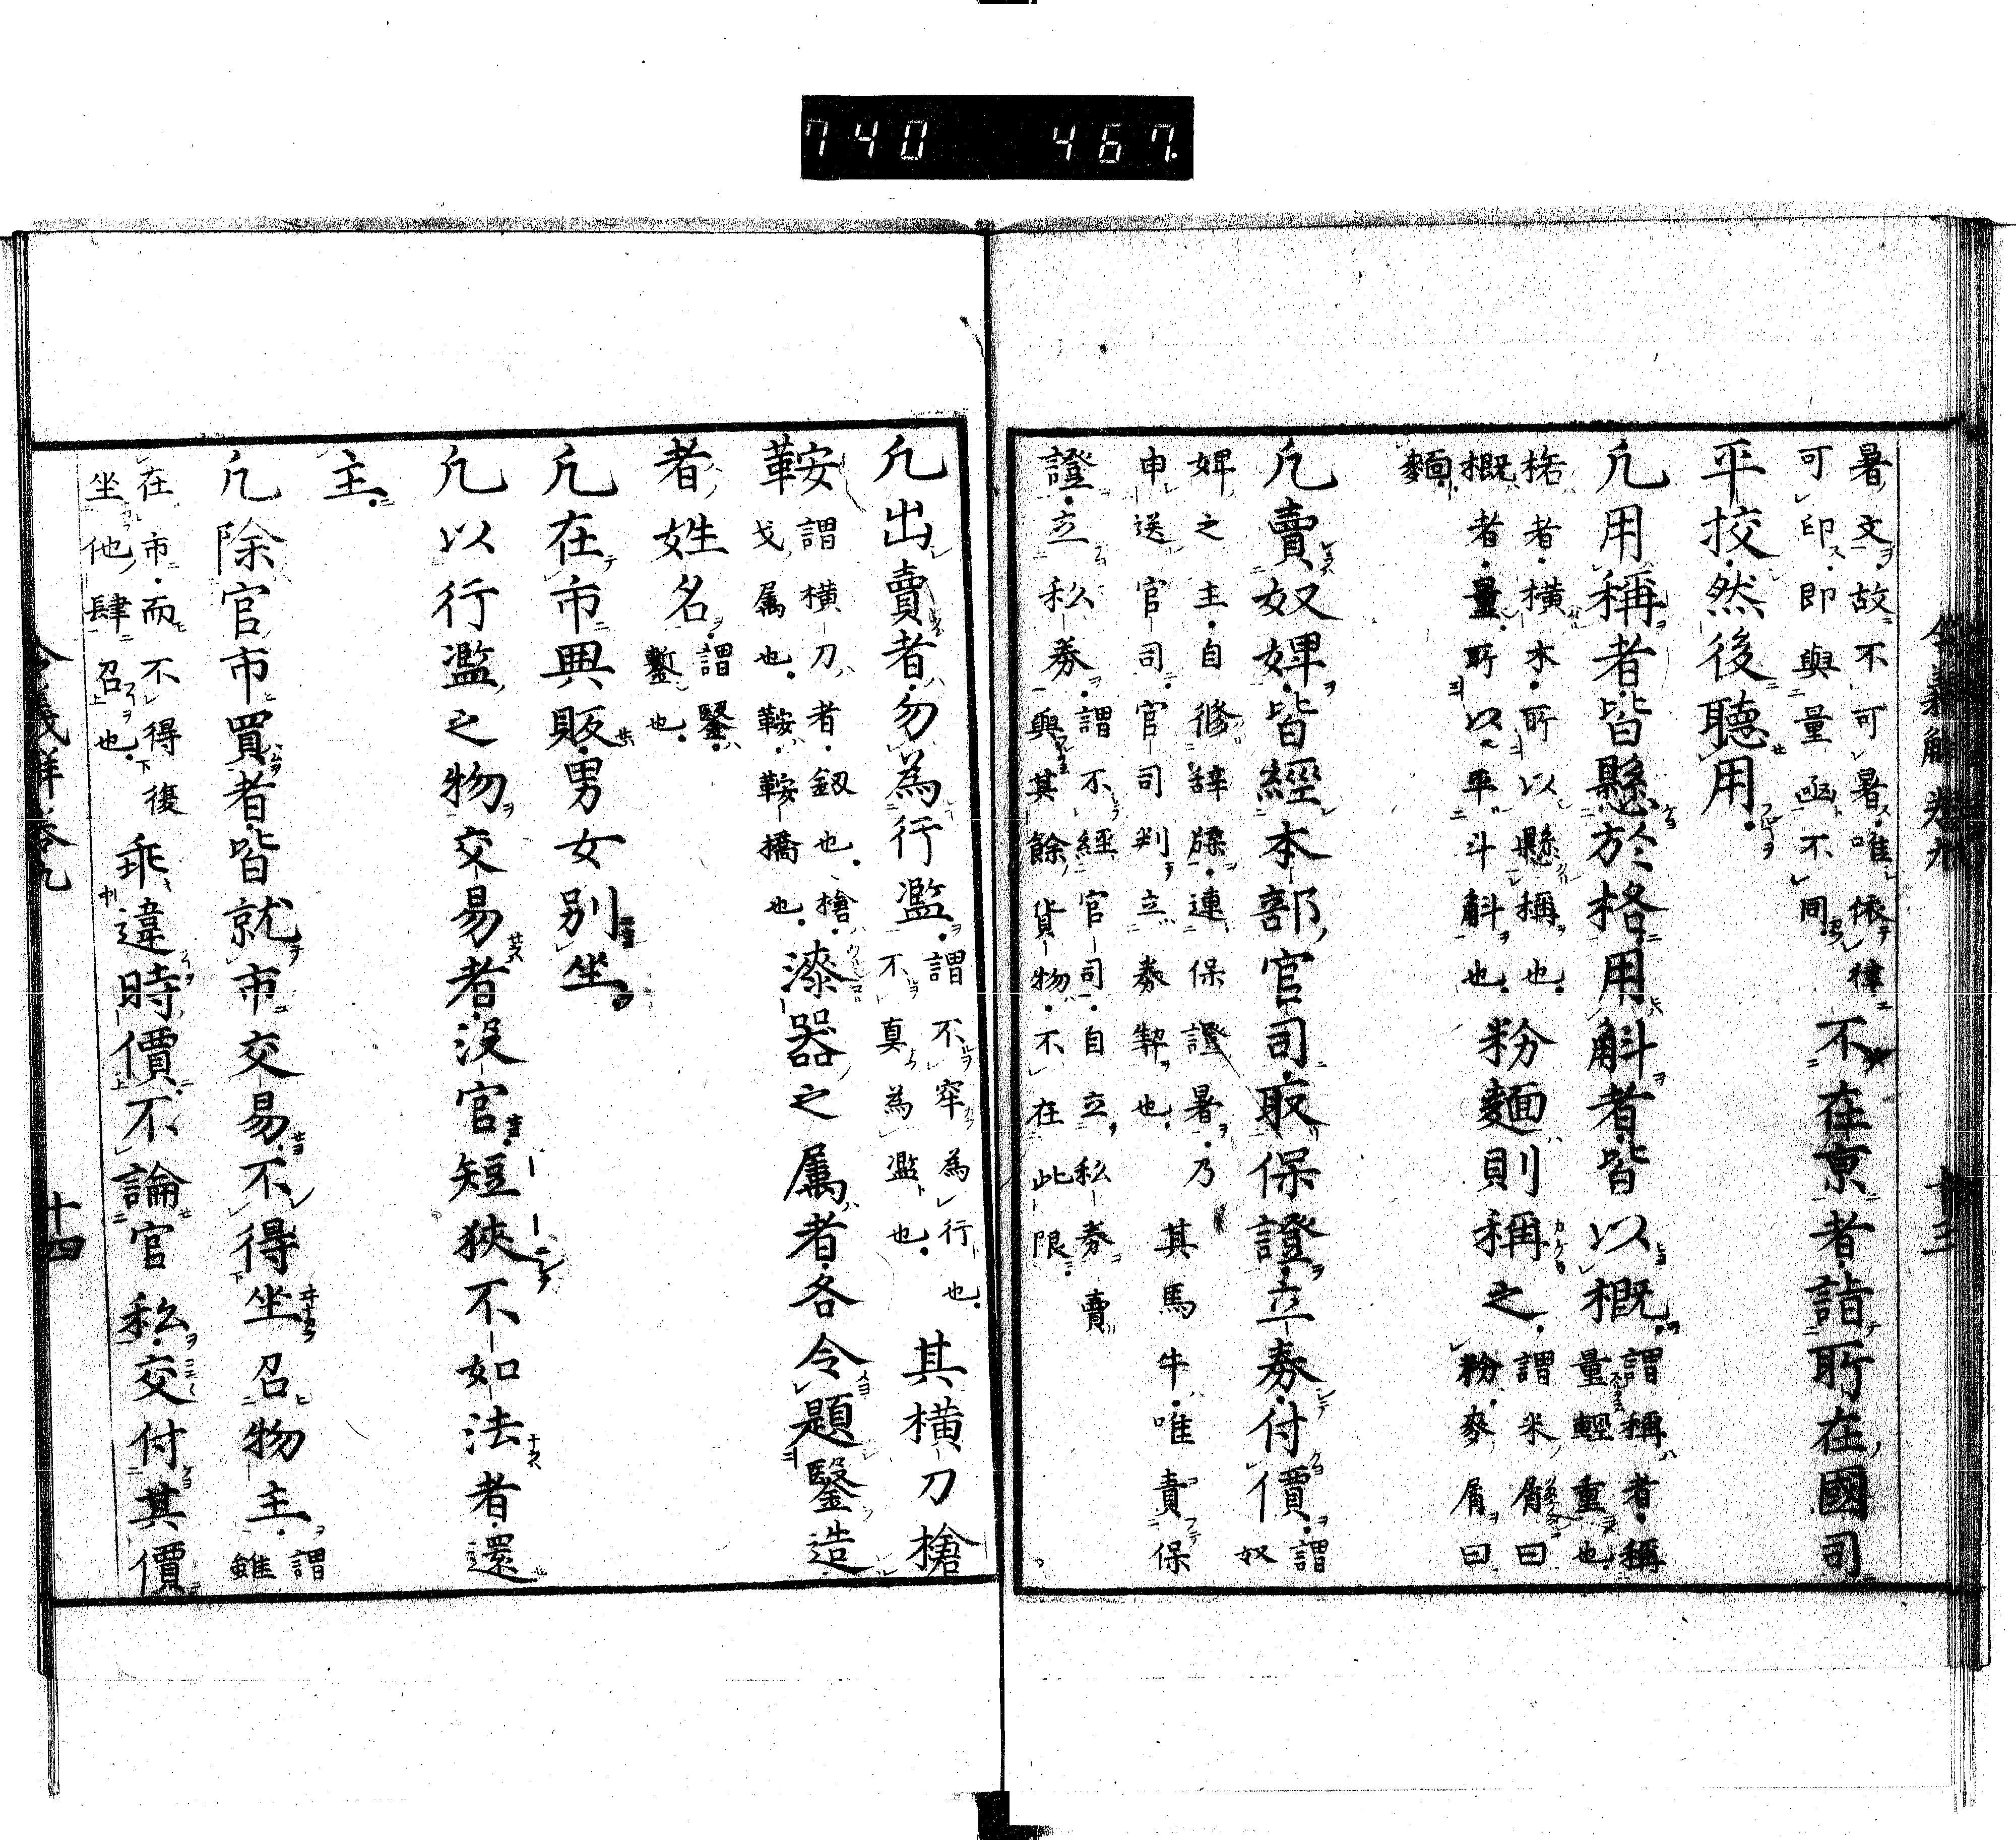 740 467
暑文故不可暑唯依律
可印即與量函不同
不在京者詣所在國司
平挍然後聽用
凡用稱者皆懸於格用斛者皆以概
謂稱者稱
量輕重也
㮝者橫木所以懸稱也
概者量所以平斗斛也
粉麵則稱之
謂米屑曰
粉麥屑曰
麵
凡賣奴婢皆經本部官司取保證立券付價
謂
奴
婢之主自修辞牒連保證暑乃
申送官司官司判立券契也
其馬牛唯責保
證立私券
謂不經官司自立私券賣
與其餘貨物不在此限
十三
凡出賣者勿為行濫
謂不窂為行也
不真為濫也
其橫刀槍
鞍
謂橫刀者釼也槍
戈属也鞍鞍橋也
漆器之属者各令題鑿造
者姓名
謂鑿
鏨也
凡在市興販男女別坐
凡以行濫之物交易者没官短狹不如法者還
主
凡除官市買者皆就市交易不得坐召物主
謂
雖
在市而不得復
坐他肆召也
乖違時價不論官私交付其價
令義解卷九
十四